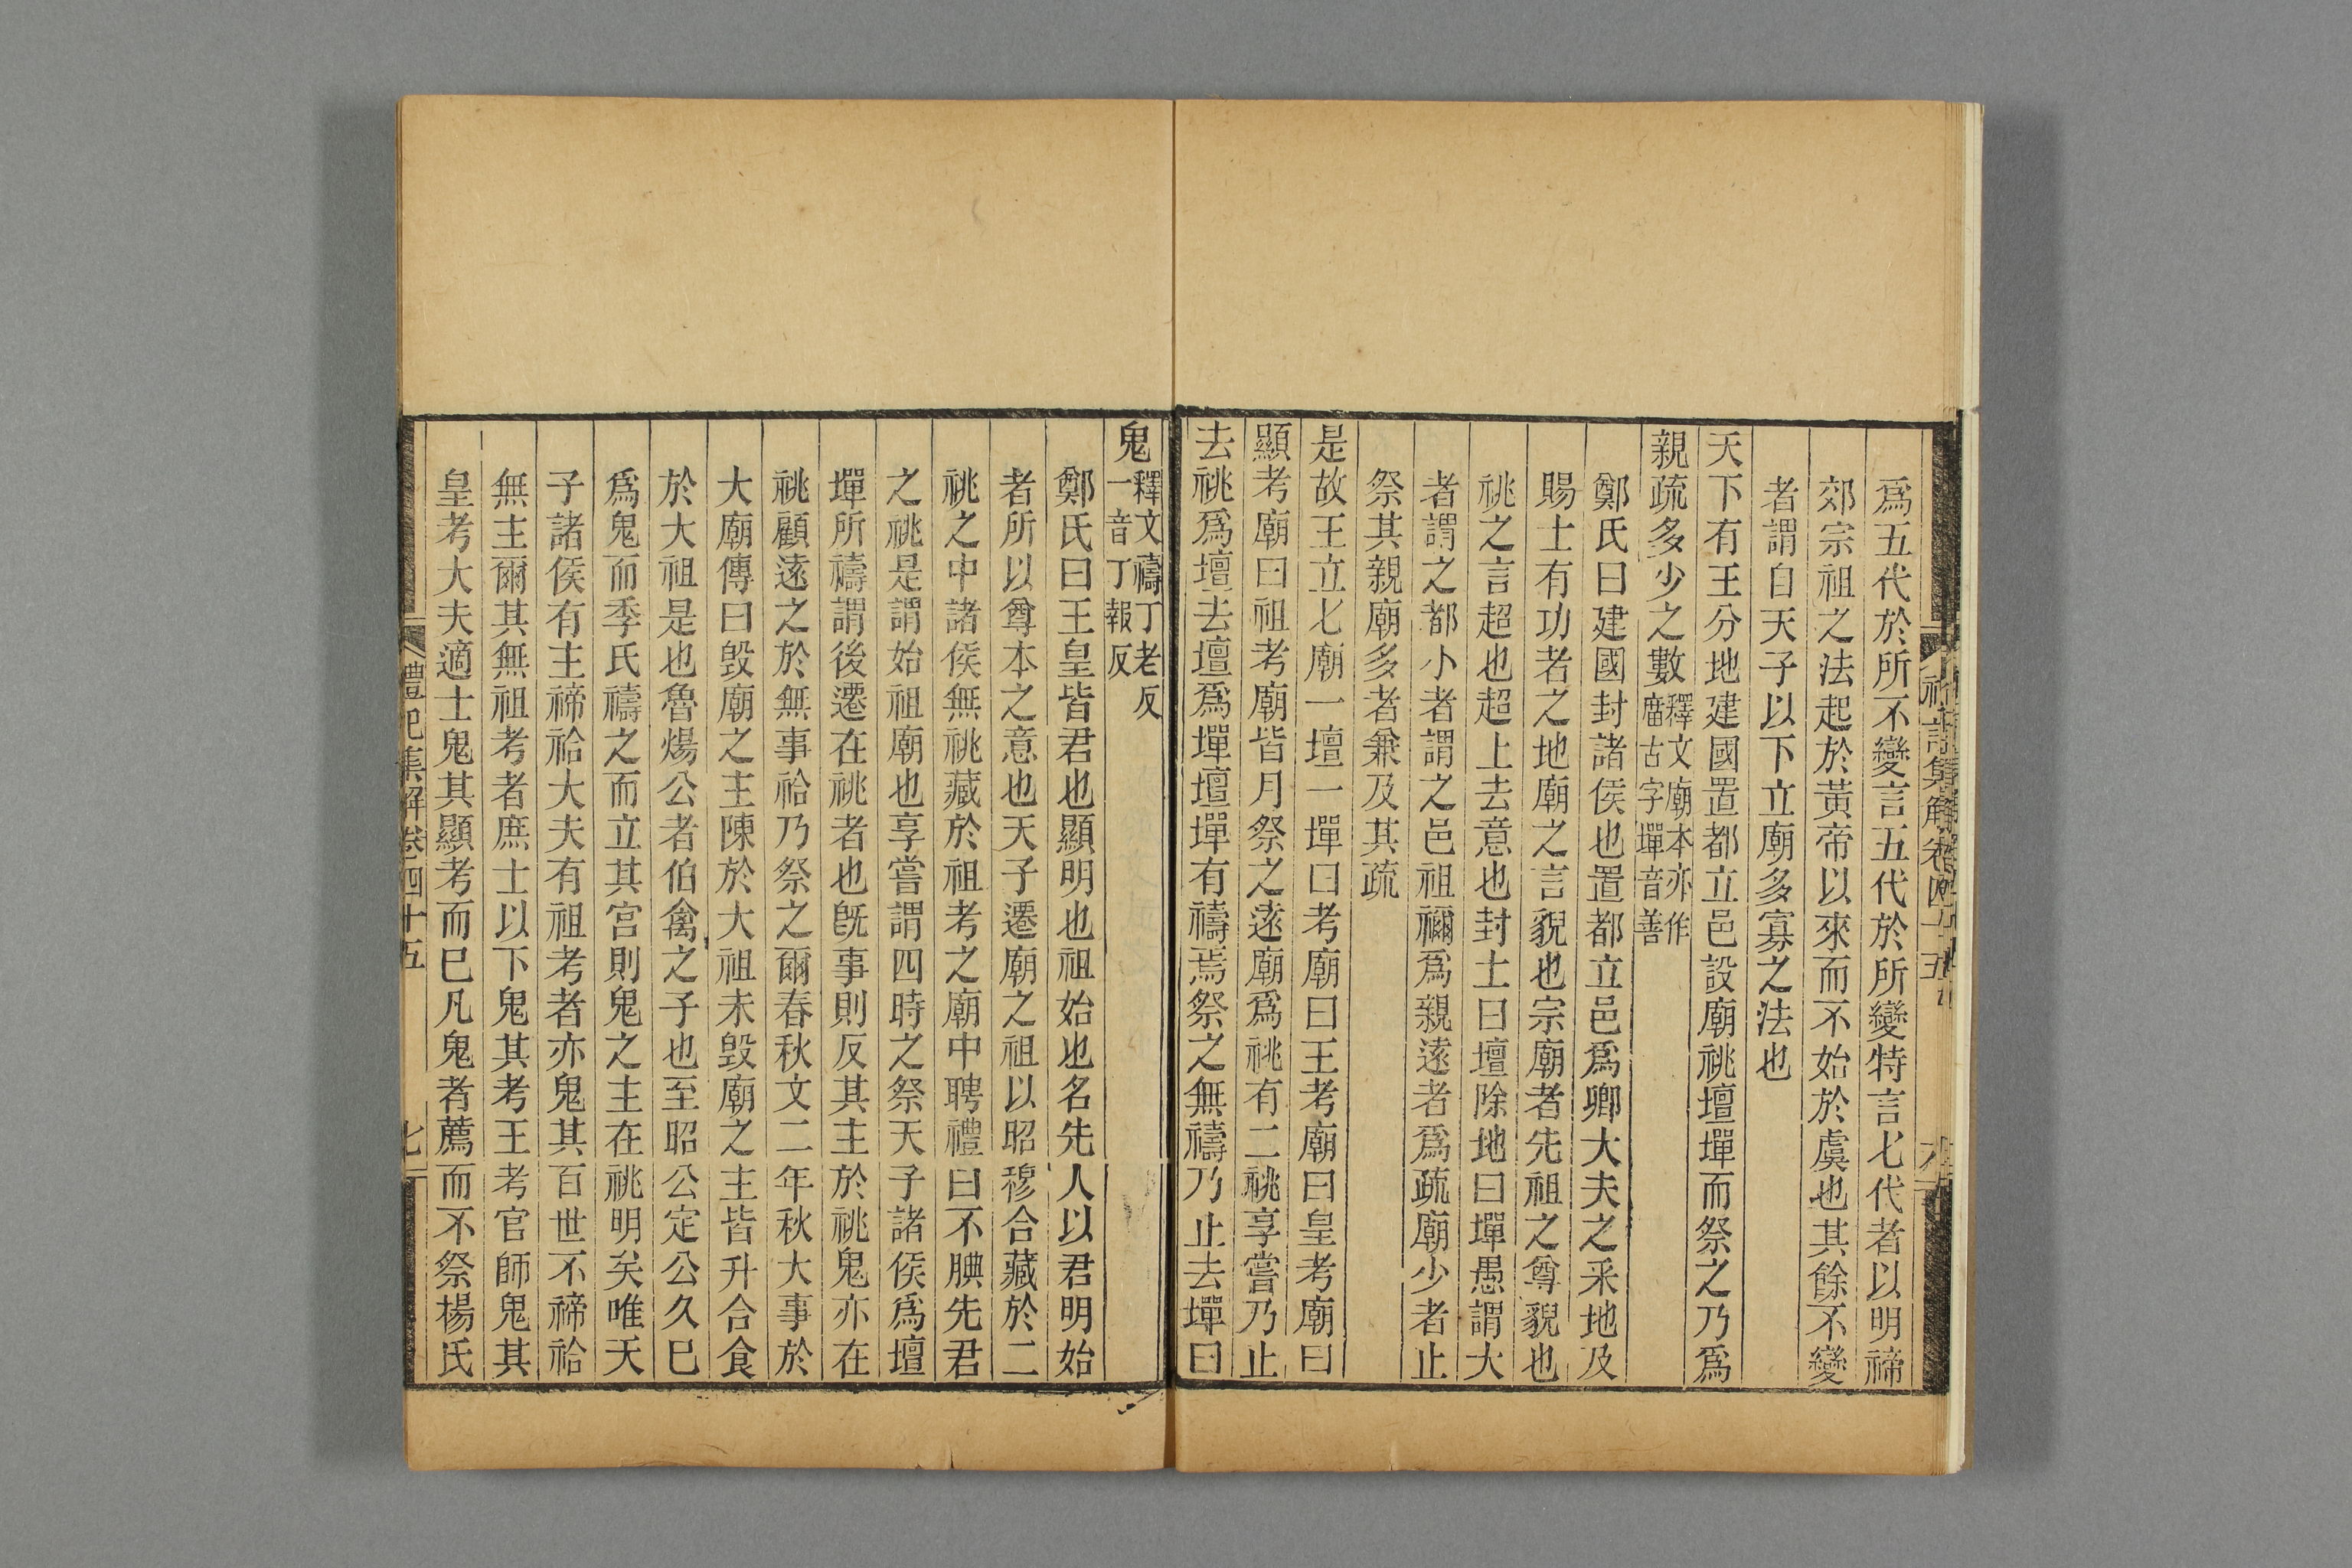 爲五代於所不變言五代於所變特言七代者以明禘
郊宗祖之法起於黃帝以來而不始於虞也其餘不變
者謂自天子以下立廟多寡之法也
天下有王分地建國置都立邑設廟祧壇墠而祭之乃爲
親疏多少之數釋文廟本亦作庿古字墠音善
鄭氏曰建國封諸侯也置都立邑爲卿大夫之采地及
賜士有功者之地廟之言貌也宗廟者先祖之尊貌也
祧之言超也超上去意也封土曰壇除地曰墠愚謂大
者謂之都小者謂之邑祖禰爲親遠者爲疏廟少者止
祭其親廟多者兼及其疏
是故王立七廟一壇一墠曰考廟曰王考廟曰皇考廟曰
顯考廟曰祖考廟皆月祭之遠廟爲祧有二祧享嘗乃止
去祧爲壇去壇爲墠壇墠有禱焉祭之無禱乃止去墠曰
鬼釋文禱丁老反一音丁報反
鄭氏曰王皇皆君也顯明也祖始也名先人以君明始
者所以尊本之意也天子遷廟之祖以昭穆合藏於二
祧之中諸侯無祧藏於祖考之廟中聘禮曰不腆先君
之祧是謂始祖廟也享嘗謂四時之祭天子諸侯爲壇
墠所禱謂後遷在祧者也旣事則反其主於祧鬼亦在
祧顧遠之於無事祫乃祭之爾春秋文二年秋大事於
大廟傳曰毀廟之主陳於大祖未毀廟之主皆升合食
於大祖是也魯煬公者伯禽之子也至昭公定公久已
爲鬼而季氏禱之而立其宮則鬼之主在祧明矣唯天
子諸侯有主禘祫大夫有祖考者亦鬼其百世不禘祫
無主爾其無祖考者庶士以下鬼其考王考官師鬼其
皇考大夫適士鬼其顯考而已凡鬼者薦而不祭楊氏
禮記集解卷四十五
七